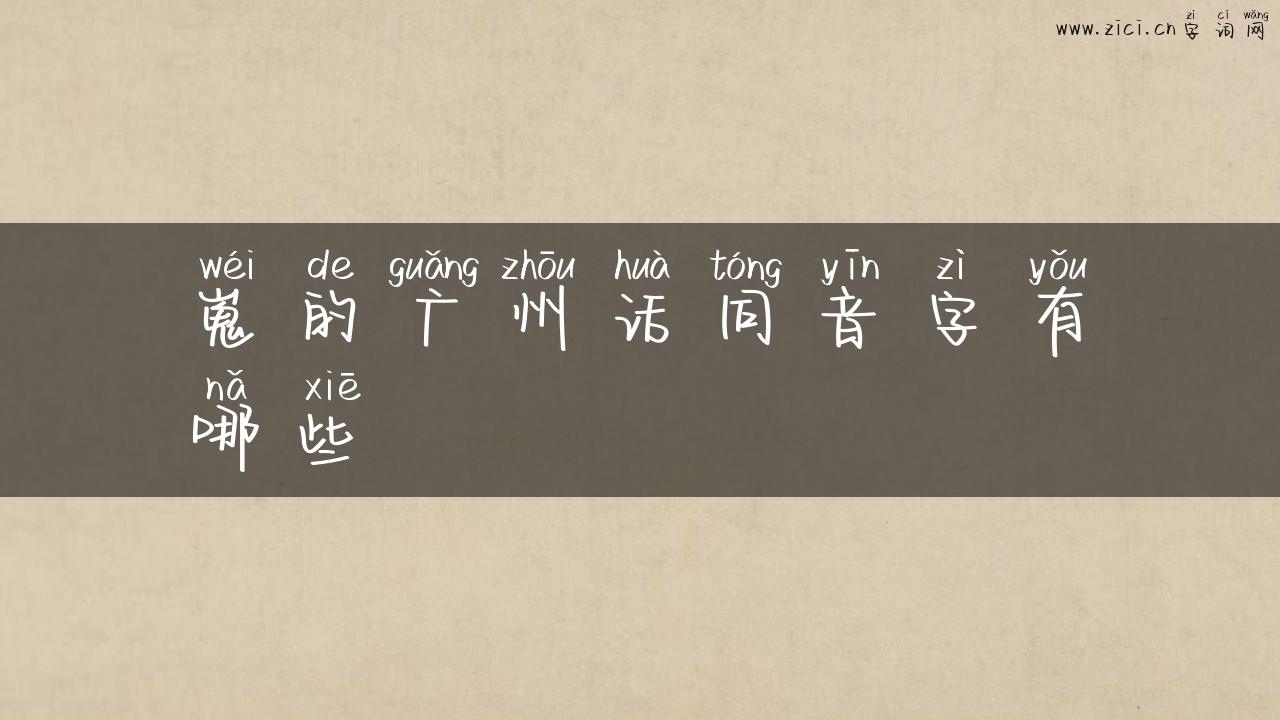 zì cí wǎng
www.zici.cn 字词网
wéi de guǎng zhōu huà tóng yīn zì yǒu
嵬的广州话同音字有
nǎ xiē
哪些